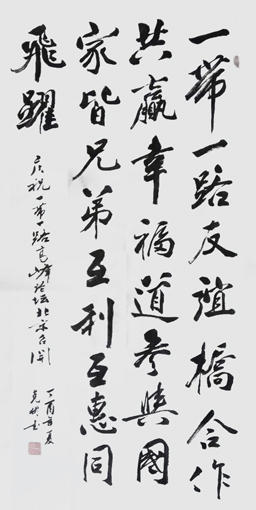 一带一路友谊桥合作
共赢幸福道参與國
家皆兄弟互利互惠同
飛躍
庆祝一带一路高峰论坛北京召開
丁酉年夏